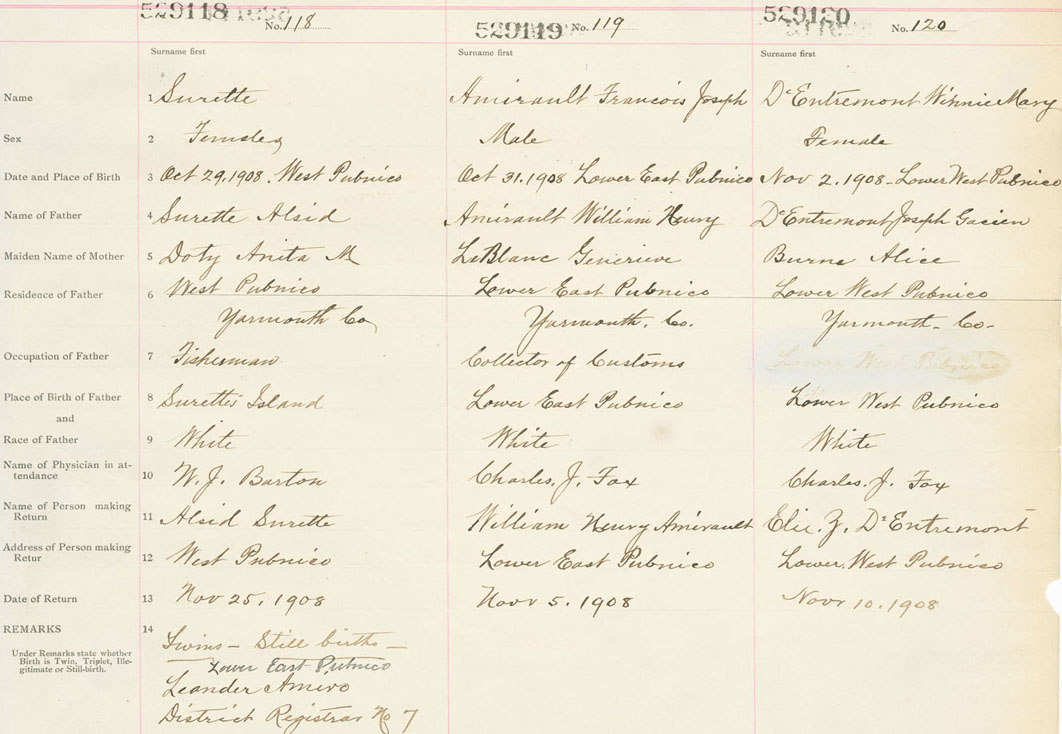 529118 No. 118 529119 No. 119 529120 No. 120
Surname first Surname first Surname first
Name 1 Surette Amirault Francois Joseph D'Entremont Winnie Mary
Sex 2 Females Male Female
Date and Place of Birth 3 Oct 29, 1908. West Pubnico Oct 31. 1908 Lower East Pubnico Nov 2. 1908 - Lower West Pubnico
Name of Father 4 Surette Alsid Amirault William Henry D'Entremont Joseph
Maiden Name of Mother 5 Doty Anita M LeBlanc Genevieve Burne Alice
Residence of Father 6 West Pubnico Lower East Pubnico Lower West Pubnico
Yarmouth Co Yarmouth. Co. Yarmouth - Co -
Occupation of Father 7 Fisherman Collector of Customs Lower West Pubnico
Place of Birth of Father 8 Surette's Island Lower East Pubnico Lower West Pubnico
and
Race of Father 9 White White White
Name of Physician in at-
tendance 10 W. J. Barton Charles. J. Fox Charles. J. Fox
Name of Person making
Return 11 Alsid Surette William Henry Amirault Elie. Z. D'Entremont
Address of Person making
Retur 12 West Pubnico Lower East Pubnico Lower. West Pubnico
Date of Return 13 Nov 25, 1908 Novr 5. 1908 Novr 10. 1908
REMARKS 14
Twins - Still births -
Under Remarks state whether
Birth is Twin, Triplet, Ille-
gitimate or Still-birth.
Lower East Pubnico
Leander Amiro
District Registrar No 7